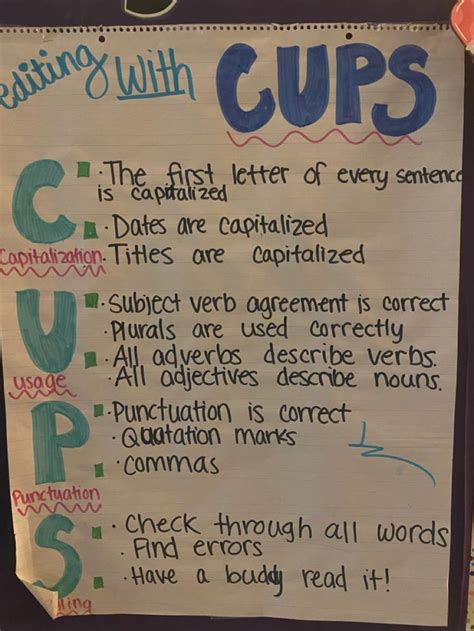 editing with CUPS
C
· The first letter of every sentence
is capitalized
· Dates are capitalized
Capitalization · Titles are capitalized
U
· Subject verb agreement is correct
· Plurals are used correctly
· All adverbs describe verbs.
usage · All adjectives describe nouns.
P
· Punctuation is correct
· Quatation marks
· commas
Punctuation
S
· Check through all words
· Find errors
· Have a buddy read it!